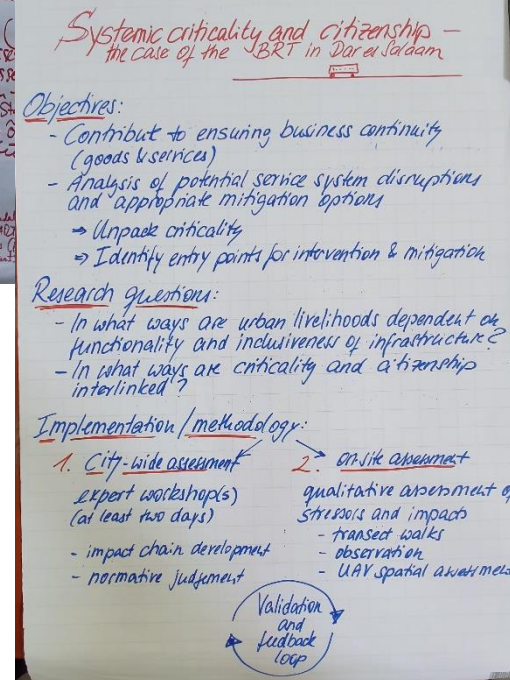 Systemic criticality and citizenship –
the case of the BRT in Dar es Salaam
Objectives:
- Contribute to ensuring business continuity
(goods & services)
- Analysis of potential service system disruptions
and appropriate mitigation options
⇒ Unpack criticality
⇒ Identify entry points for intervention & mitigation
Research questions:
- In what ways are urban livelihoods dependent on
functionality and inclusiveness of infrastructure?
- In what ways are criticality and citizenship
interlinked?
Implementation/methodology:
1. City-wide assessment
expert workshop(s)
(at least two days)
- impact chain development
- normative judgement
2. on-site assessment
qualitative assessment of
stressors and impacts
- transect walks
- observation
- UAV spatial assessment
Validation
and
feedback
loop